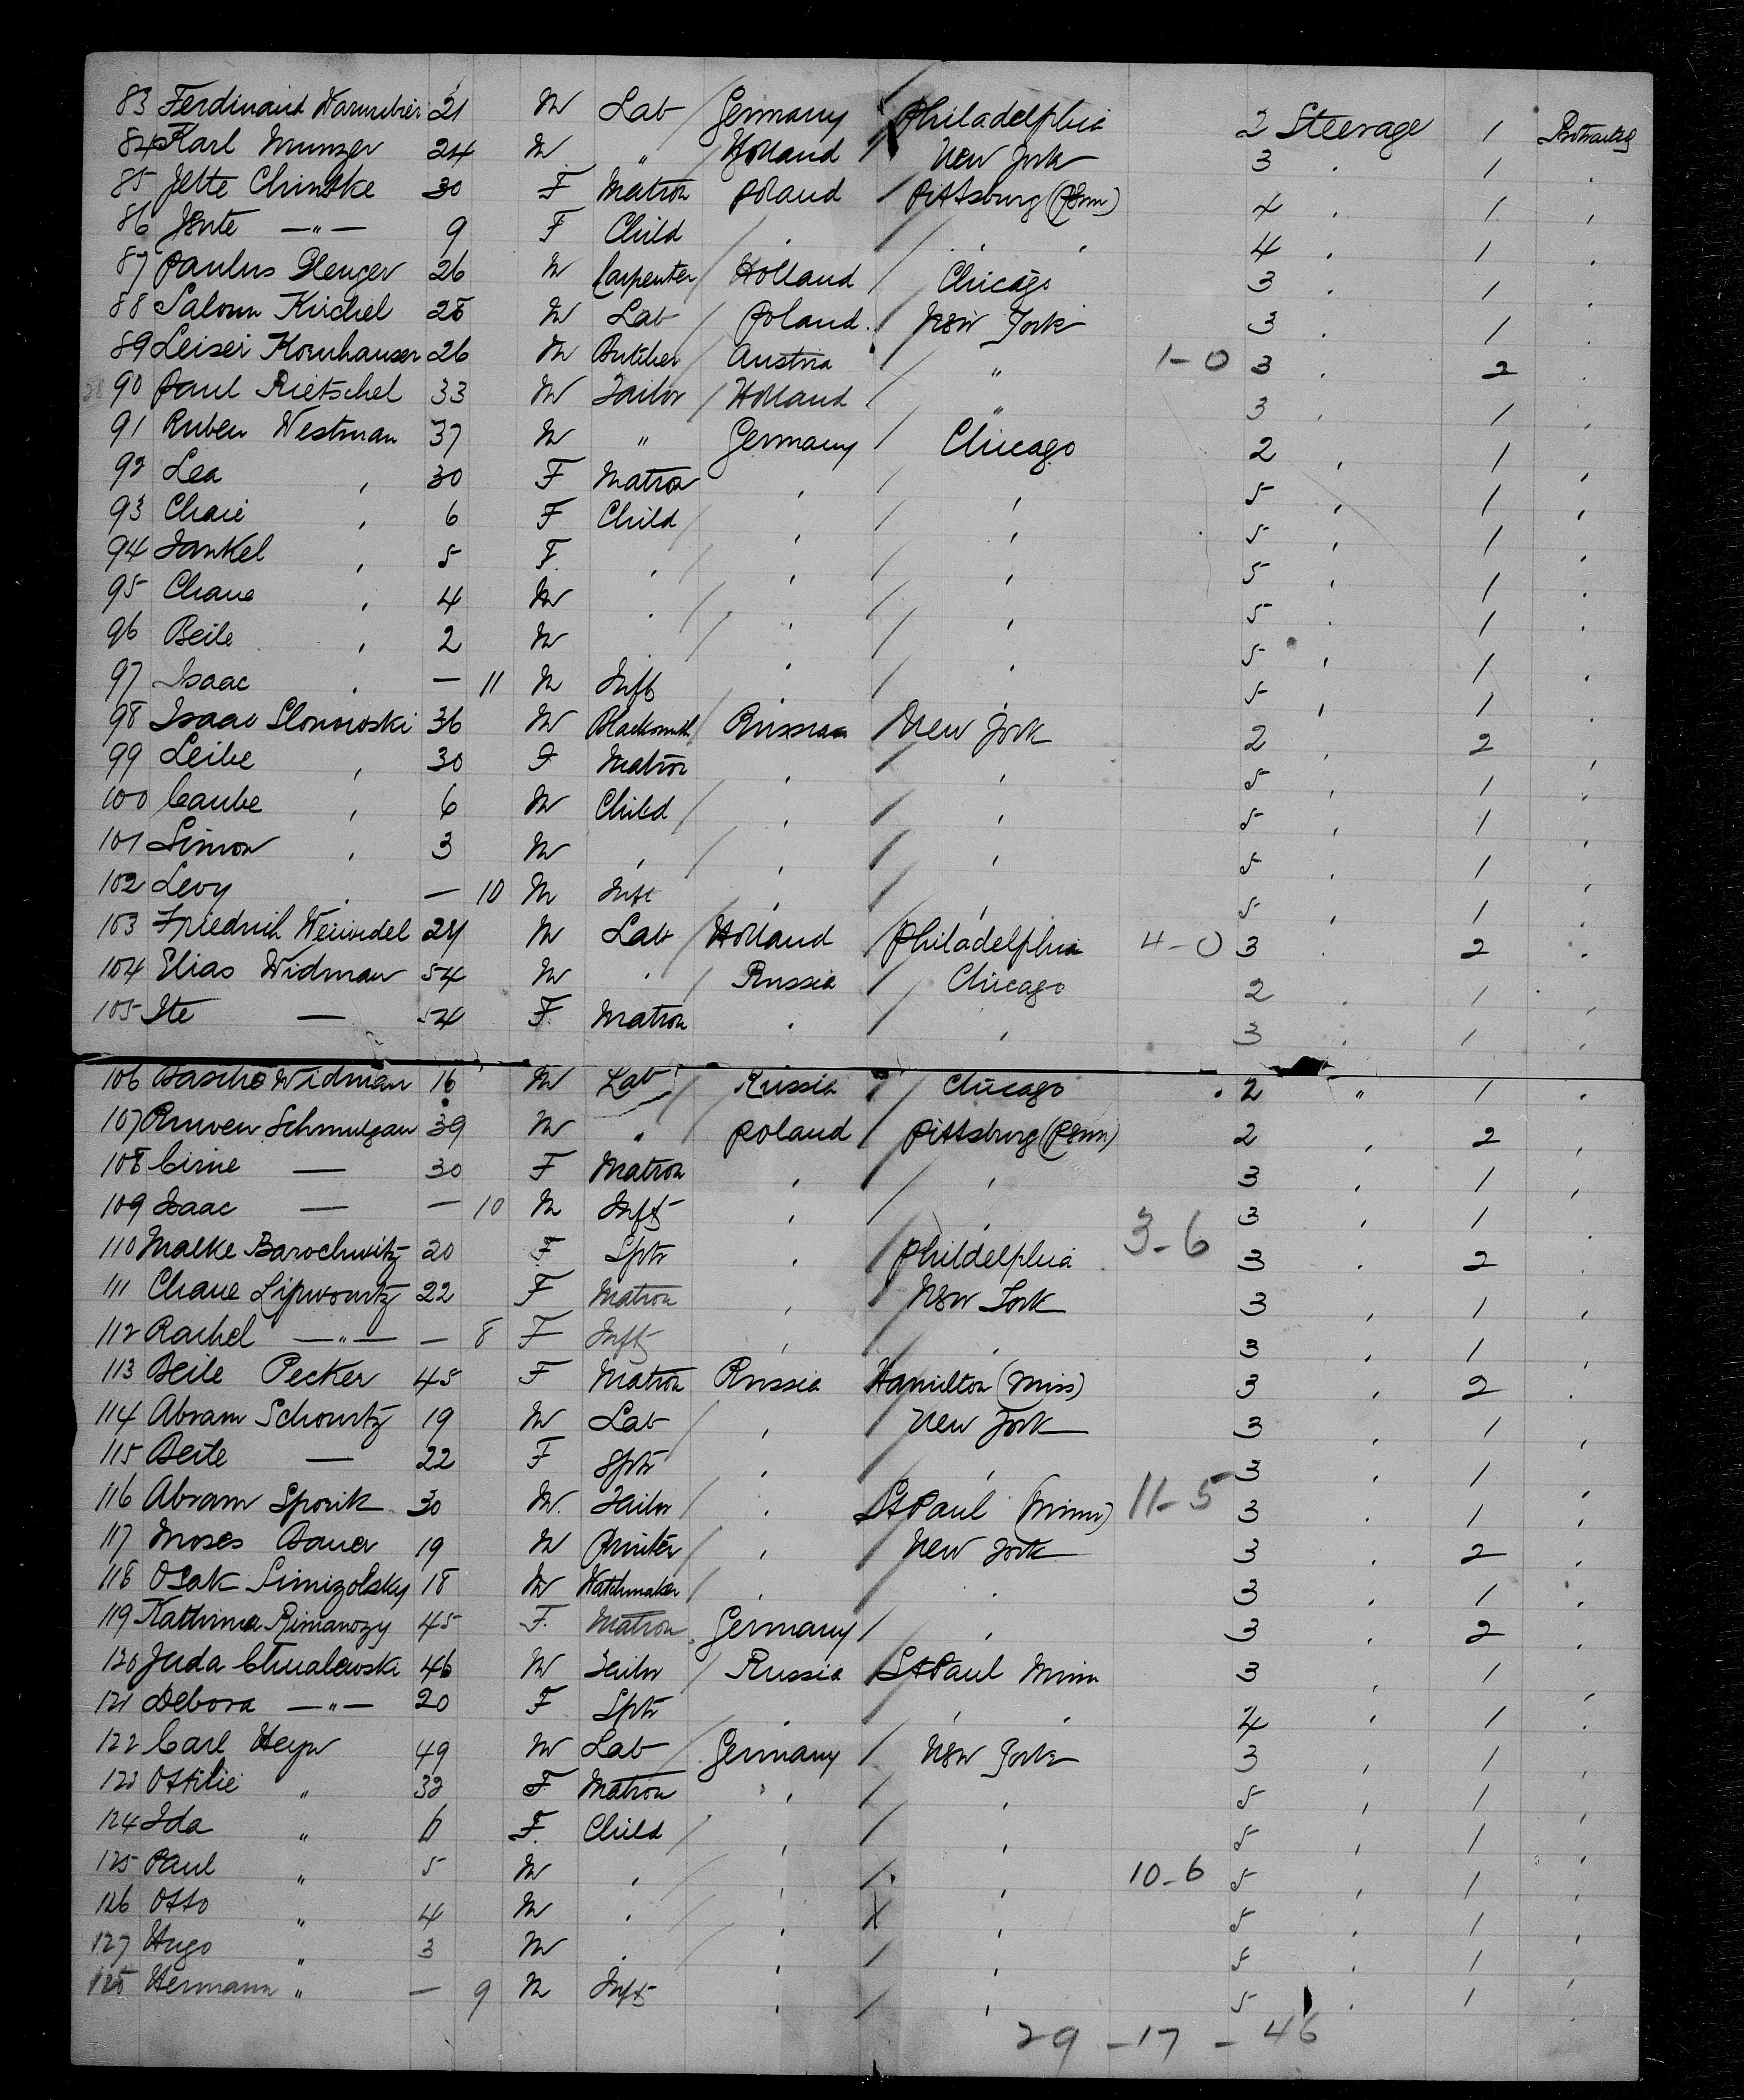 83 Ferdinand Warmbier 21 M Lab Germany Philadelphia 2 Steerage 1
84 Karl Munzer 24 M " Holland New York 3 . 1 .
85 Jette Chinske 30 F Matron Poland Pittsburg (Penn) 4 . 1 ,
86 Jente —"— 9 F Child . . . 4 . 1 .
87 Paulus Plenger 26 M Carpenter Holland Chicago 3 . 1 .
88 Kirchel 28 M Lab Poland New York 3 . 1 .
89 Leiser Kornhauser 26 M Butcher Austria " 1-0 3 . 2 .
90 Paul Rietschel 33 M Tailor Holland " 3 . 1 .
91 Ruben Westman 37 M " Germany Chicago 2 , 1 ,
92 Lea , 30 F Matron , , 5 , 1 ,
93 Chaie , 6 F Child , , 5 , 1 .
94 Jankel , 5 F. , , , 5 , 1 .
95 Chane , 4 M . . , 5 . 1 .
96 Beile , 2 M . . . 5 , 1 .
97 Isaac . — 11 M Inft . . 5 , 1 .
98 Isaac Slonnoski 36 M Blacksmith Russian New York 2 . 2 ,
99 Leibe , 30 F Matron , , 5 , 1 .
100 Caube , 6 M Child , , 5 , 1 ,
101 Simon , 3 M , , , 5 . 1 ,
102 Levy . — 10 M Inft , , 5 , 1 .
103 Friedrich 24 M Lab Holland Philadelphia 4-0 3 . 2 .
104 Elias Widman 54 M . Russia Chicago 2 . 1 ,
105 Ite — 54 F. Matron . , 3 . 1 .
106 Widman 16 M Lab Russia Chicago 2 " 1 .
107 Ruwen Schmulgan 39 M " Poland Pittsburg (Penn) 2 , 2 ,
108 Cirne — 30 F Matron , , 3 , 1 ,
109 Isaac — — 10 M Inft , , 3 , 1 .
110 Malke Barochwitz 20 F Sptr . Phildelphia 3-6 3 . 2 .
111 Chane Lipwourtz 22 F Matron , New York 3 , 1 ,
112 Rachel —"— — 8 F Inft , . 3 , 1 ,
113 Beile Pecker 45 F Matron Russia Hamilton (Miss) 3 , 2 .
114 Abram Schourtz 19 M Lab , New York 3 , 1 ,
115 Beile — 22 F Sptr , , 3 , 1 ,
116 Abram Sporik 30 M. Tailor . St Paul (Minn) 11-5 3 . 1 ,
117 Moses Bauer 19 M Printer , New York 3 , 2 .
118 Osak Simizolsky 18 M Watchmaker . . 3 , 1 .
119 Kathrina Rimanozy 45 F. Matron Germany , 3 , 2 .
120 Juda Chualewski 46 M Tailor Russia St Paul Minn 3 , 1 ,
121 Debora —"— 20 F Sptr . , . 4 , 1 .
122 Carl Heyn 49 M Lab Germany New York 3 , 1 ,
123 Ottilie " 32 F Matron , , 5 , 1 ,
124 Ida " 6 F. Child , , 5 , 1 ,
125 Paul " 5 M , , , 10-6 5 , 1 ,
126 Otto " 4 M . . X , 5 . 1 ,
127 Hugo " 3 M . , , 5 . 1 ,
128 Hermann " — 9 M Inft , , 5 . 1 .
29 - 17 - 46